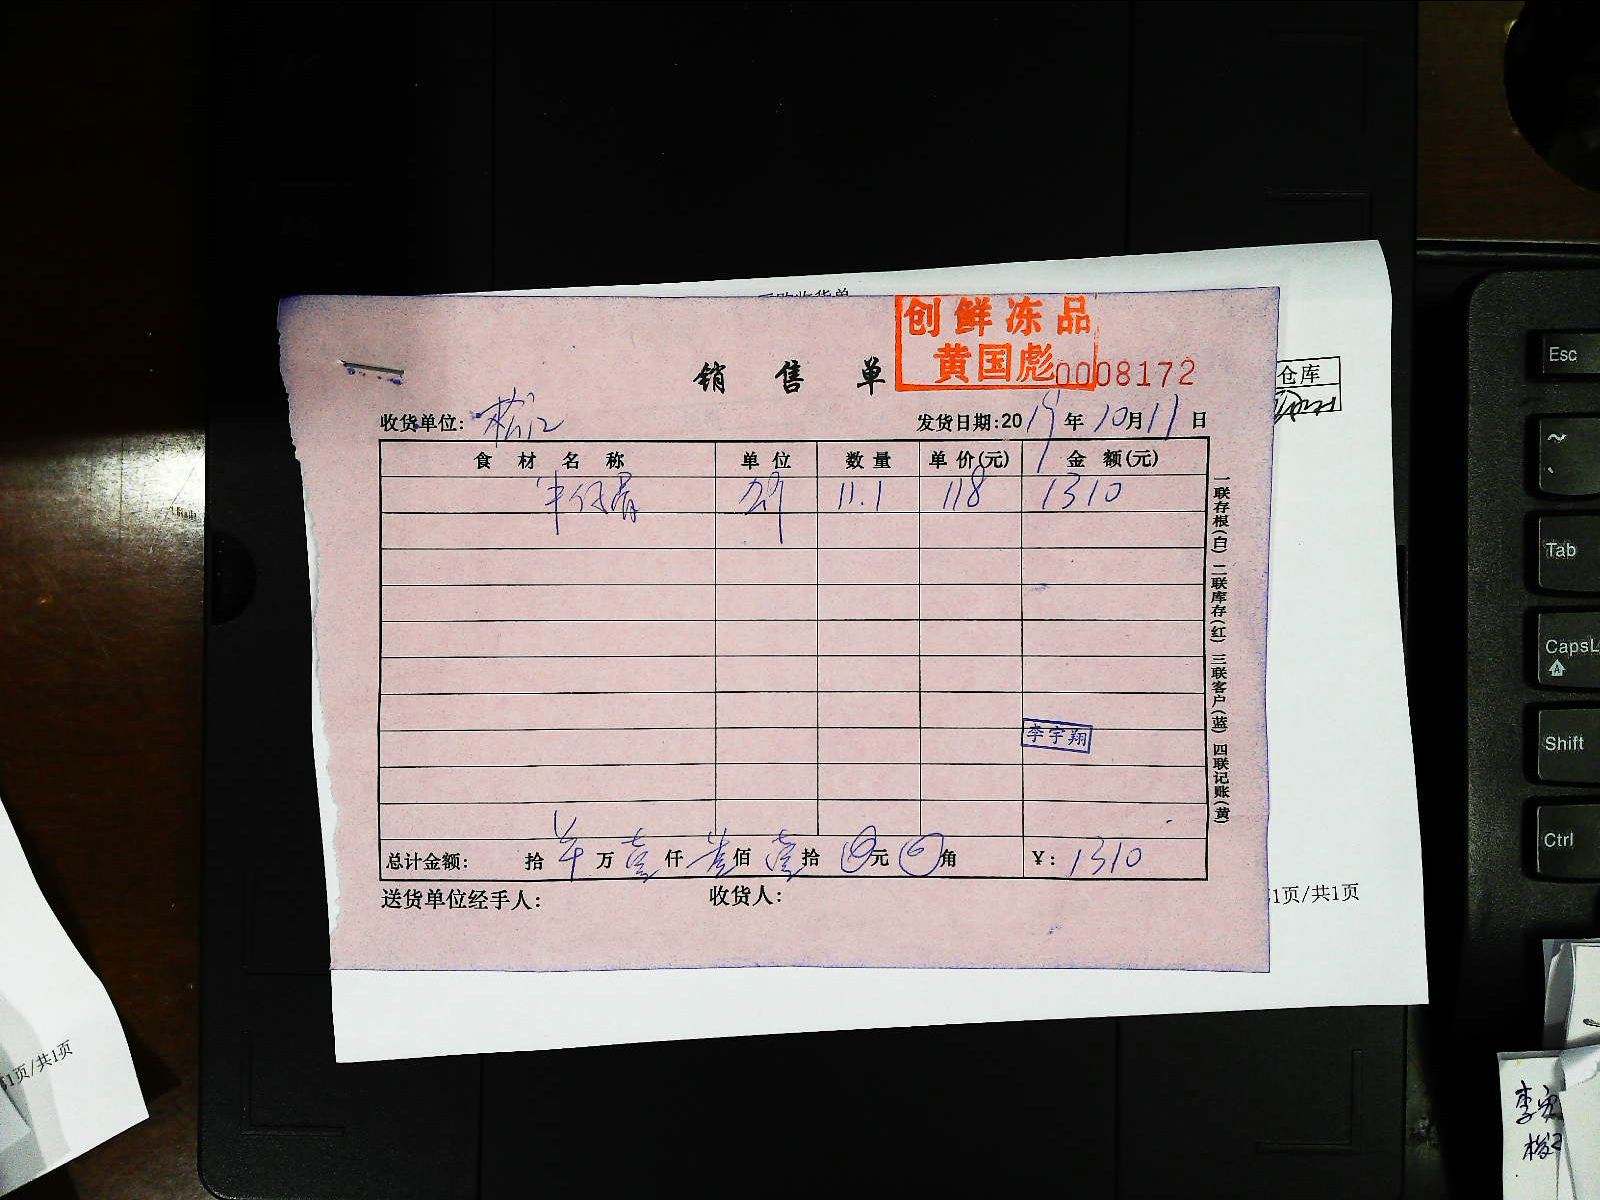 创鲜冻品
黄国彪
销售单
0008172
仓库
收货单位: 松江
发货日期:2019年10月11日
食材名称 单位 数量 单价(元) 金额(元)
11.1 118 1310
一联存根(白) 二联库存(红) 三联客户(蓝) 四联记账(黄)
李宇翔
总计金额: 拾 万 壹仟 叁佰 壹拾 元 角 ¥: 1310
送货单位经手人: 收货人:
1页/共1页
1页/共1页
Esc
~
Tab
CapsL
Shift
Ctrl